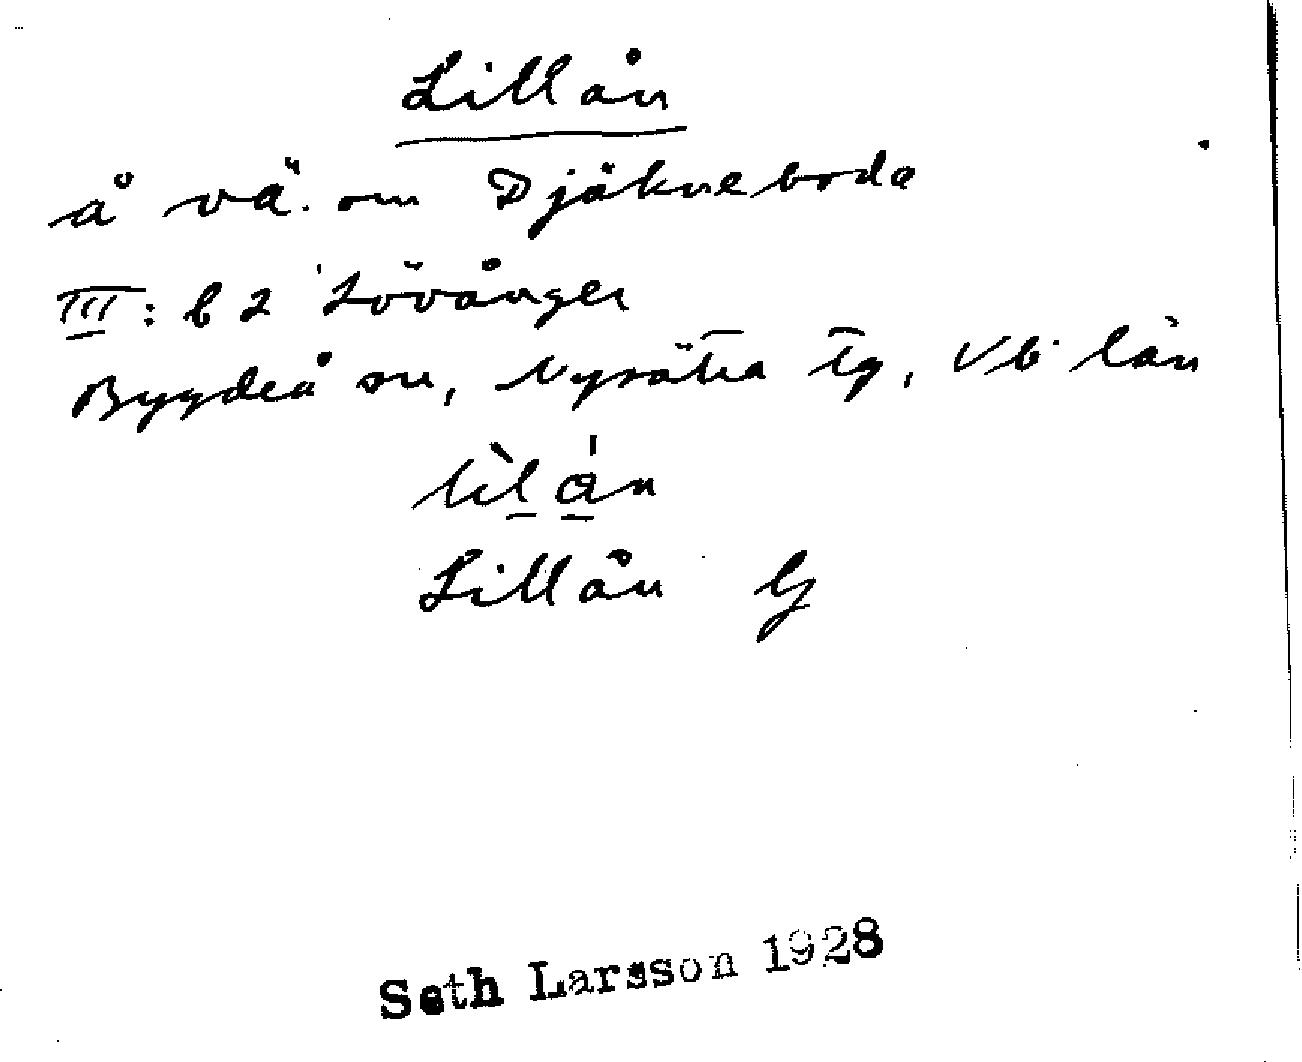 Lillån
å vä. om Djäkneboda
III: b 2 Lövånger
Bygdeå sn, Nysätra tg, Vb. län
lìlån
Lillån G
Seth Larsson 1928